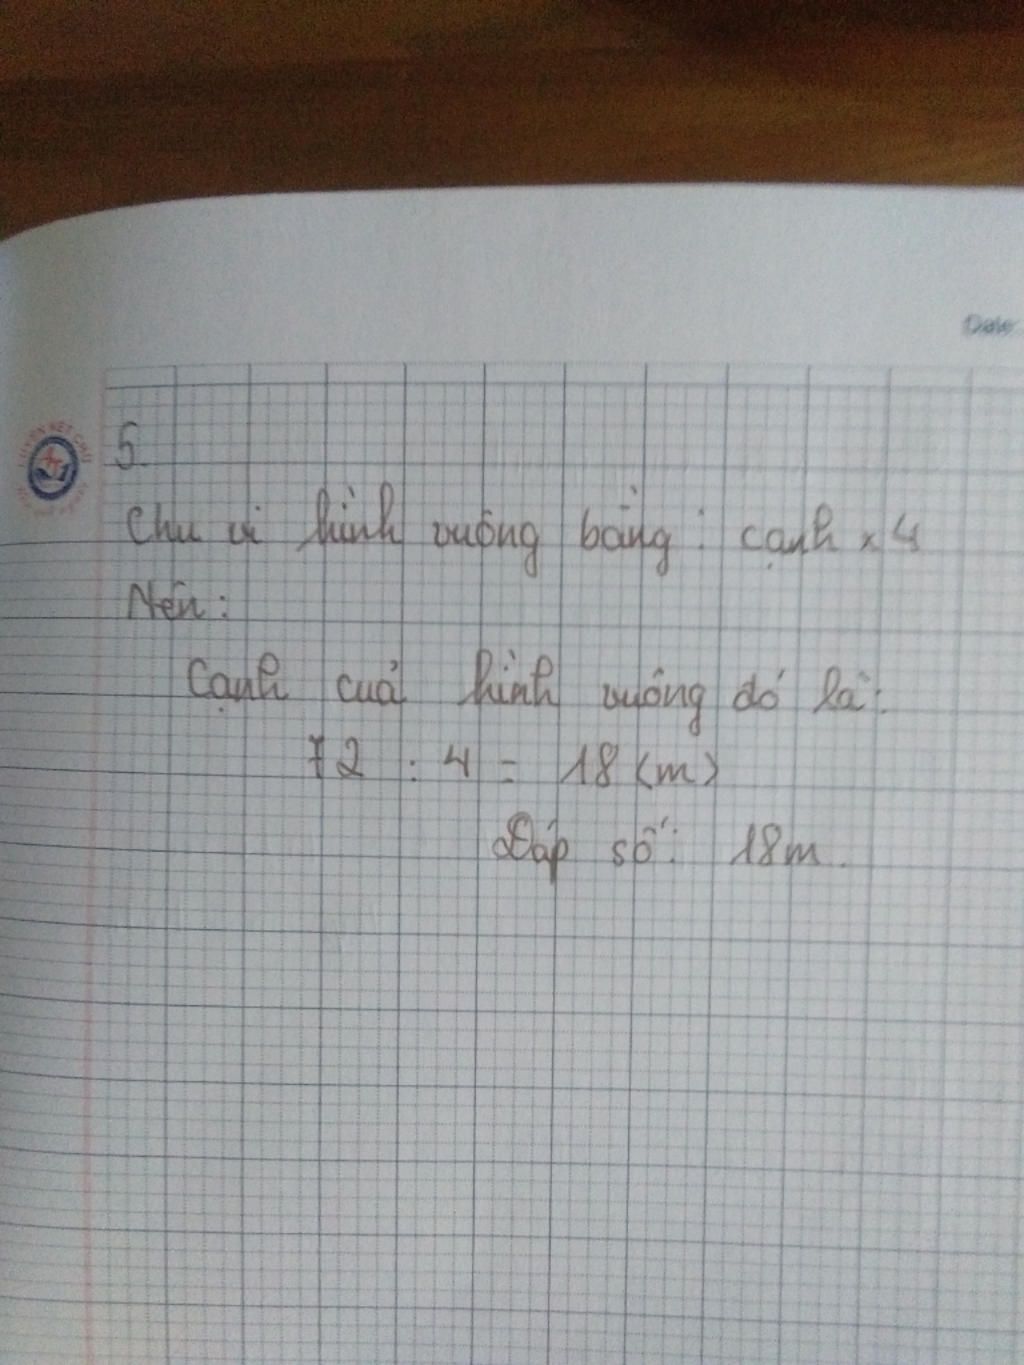 Date:
5.
Chu vi hình vuông bằng : cạnh x 4
Nên :
Cạnh của hình vuông đó là:
72 : 4 = 18 (m)
Đáp số : 18m.